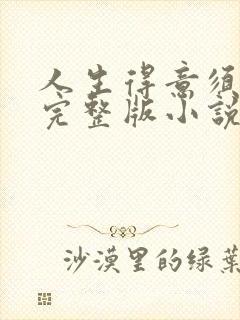 人生得意须
完整版小說
沙漠里的绿葉